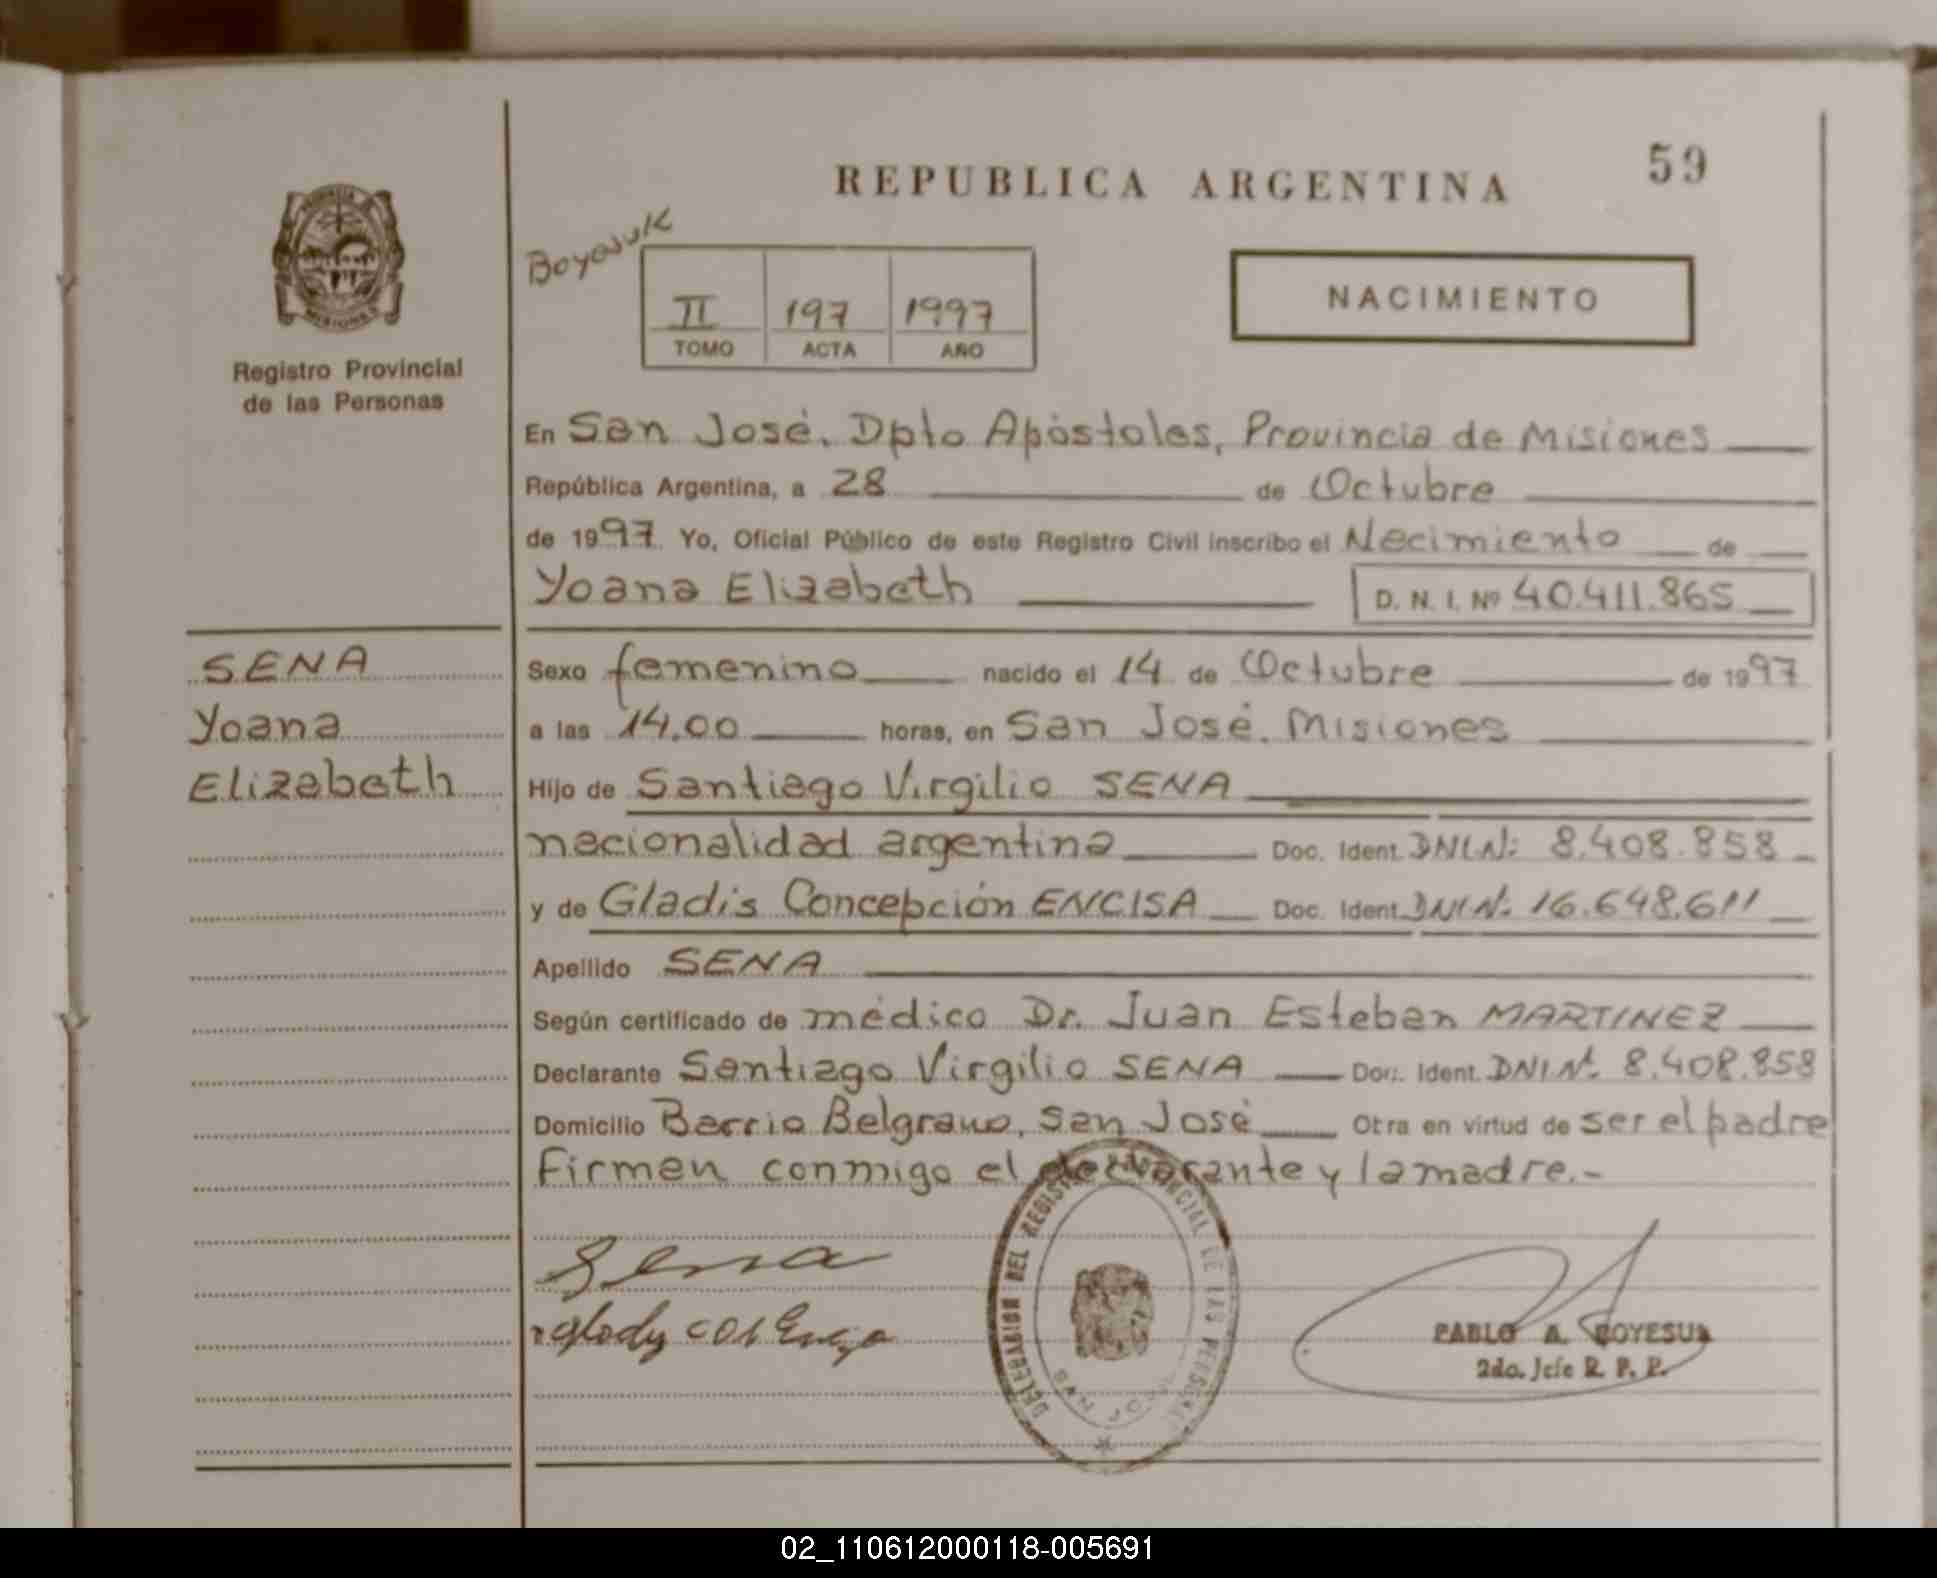 59
REPUBLICA ARGENTINA
Boyasuk
NACIMIENTO
II 197 1997
TOMO ACTA AÑO
MISIONES
Registro Provincial
de las Personas
En San José, Dpto Apóstoles, Provincia de Misiones
República Argentina, a 28 de Octubre
de 1997 Yo, Oficial Público de este Registro Civil inscribo el Nacimiento de
Yoana Elizabeth D. N. I. Nº 40.411.865
SENA
Yoana
Elizabeth
Sexo femenino nacido el 14 de Octubre de 1997
a las 14.00 horas, en San José. Misiones
Hijo de Santiago Virgilio SENA
nacionalidad argentina Doc. Ident. DNI.N: 8.408.858
y de Gladis Concepción ENCISA Doc. Ident. DNI N: 16.648.611
Apellido SENA
Según certificado de médico Dr. Juan Esteban MARTINEZ
Declarante Santiago Virgilio SENA Doc. Ident. DNI Nº 8.408.858
Domicilio Barrio Belgrano, San José Otra en virtud de ser el padre
Firman conmigo el declarante y la madre.-
DELEGACION DEL REGISTRO PROVINCIAL DE LAS PERSONAS
Sena
PABLO A. BOYESUK
2do. Jefe R. P. P.
02_110612000118-005691